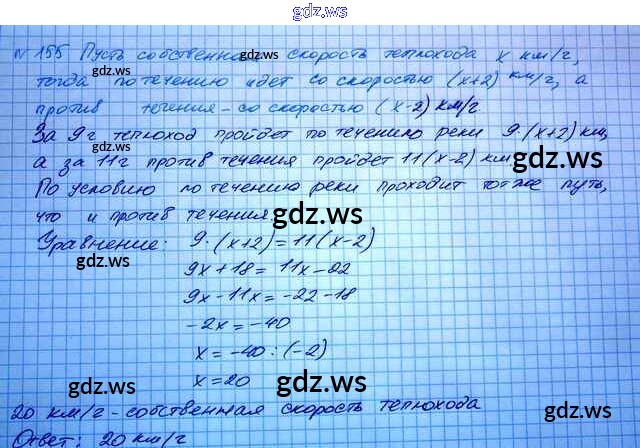 gdz.ws
№155 Пусть собственная скорость теплохода х км/г,
тогда по течению идет со скоростью (х+2) км/г, а
против течения - со скоростью (х-2) км/г
За 9г теплоход пройдет по течению реки 9·(х+2) км,
а за 11г против течения пройдет 11(х-2) км
По условию по течению реки проходит тот же путь,
что и против течения.
Уравнение: 9·(х+2)=11(х-2)
9х+18=11х-22
9х-11х=-22-18
-2х=-40
х=-40:(-2)
х=20
20 км/г - собственная скорость теплохода
Ответ: 20 км/г
gdz.ws
gdz.ws
gdz.ws
gdz.ws
gdz.ws
gdz.ws
gdz.ws
gdz.ws
gdz.ws